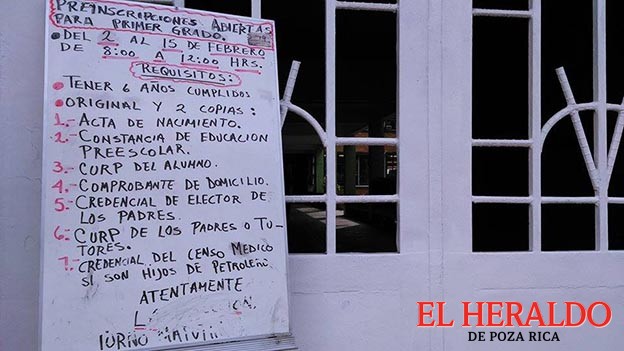 PREINSCRIPCIONES ABIERTAS
PARA PRIMER GRADO.
• DEL 2 AL 15 DE FEBRERO
DE 8:00 A 12:00 HRS.
REQUISITOS:
• TENER 6 AÑOS CUMPLIDOS
• ORIGINAL Y 2 COPIAS:
1.- ACTA DE NACIMIENTO.
2.- CONSTANCIA DE EDUCACION
PREESCOLAR.
3.- CURP DEL ALUMNO.
4.- COMPROBANTE DE DOMICILIO.
5.- CREDENCIAL DE ELECTOR DE
LOS PADRES.
6.- CURP DE LOS PADRES O TU-
TORES.
7.- CREDENCIAL DEL CENSO MEDICO
SI SON HIJOS DE PETROLERO
ATENTAMENTE
TURNO
EL HERALDO
DE POZA RICA